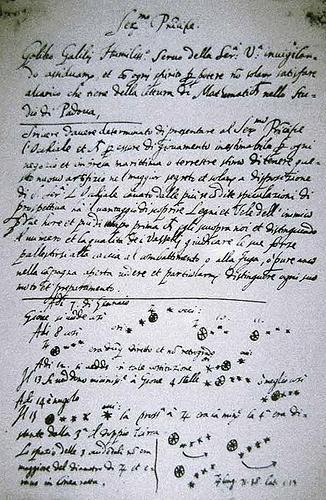 Ser.mo Principe.
Galileo Galilei Humiliss.o Servo della Ser.a V.a invigilan-
do assiduam.te et con ogni spirito p potere no solam. satisfare
al carico che tiene della lettura di Mathematich. nello Stu-
dio di Padova,
Scrivere d'avere determinato di presentare al Ser.mo Principe
l'Occhiale et p essere di giovamento inestimabile p ogni
negozio et impresa marittima o terrestre stimo di tenere que-
sto nuovo artifizio nel maggior segreto et solam. a disposizione
di L'Occhiale cavato dalle più recondite speculazioni di
prospettiva ha il vantaggio di scoprire Legni et Vele dell'inimico
hore et più di tempo prima ch'egli scuopra noi et distinguendo
il numero et la qualità de i Vasselli giudicare le sue forze
pallestirsi alla caccia al combattimento o alla fuga, o pure anco
nella campagna aperta vedere et particolarm. distinguere ogni suo
moto et preparamento.
Adi 7 di Gennaio
Giove si vedde così
Adi 8 così
era diretto et no retrogrado
Adi 12 si vedde in tale costituzione
Il 13 si veddono vicinis. a Giove 4 stelle
meglio così
Adi 14 è nugolo
Il 15
la pross.a a ♃ era la min.a la 4.a era di-
stante dalla 3.a il doppio circa
Lo spazio delle 3 occidentali no era
maggiore del diametro di ♃ et e-
rano in linea retta.